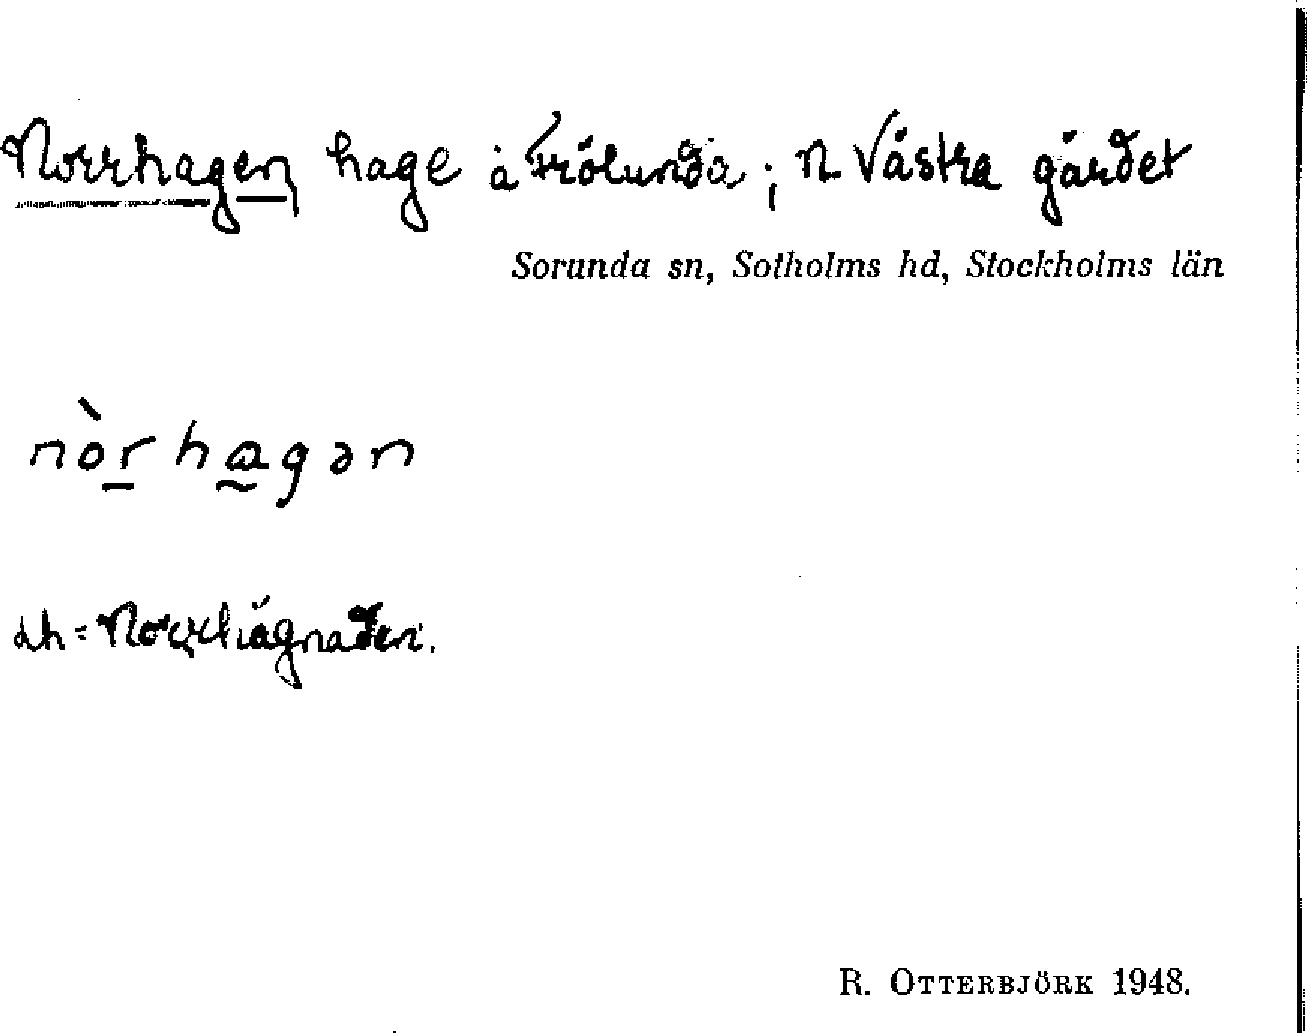 Norrhagen hage å Frölunda; n Västra gärdet
Sorunda sn, Sotholms hd, Stockholms län
nòrhagən
= Norrhägnaden.
R. OTTERBJÖRK 1948.